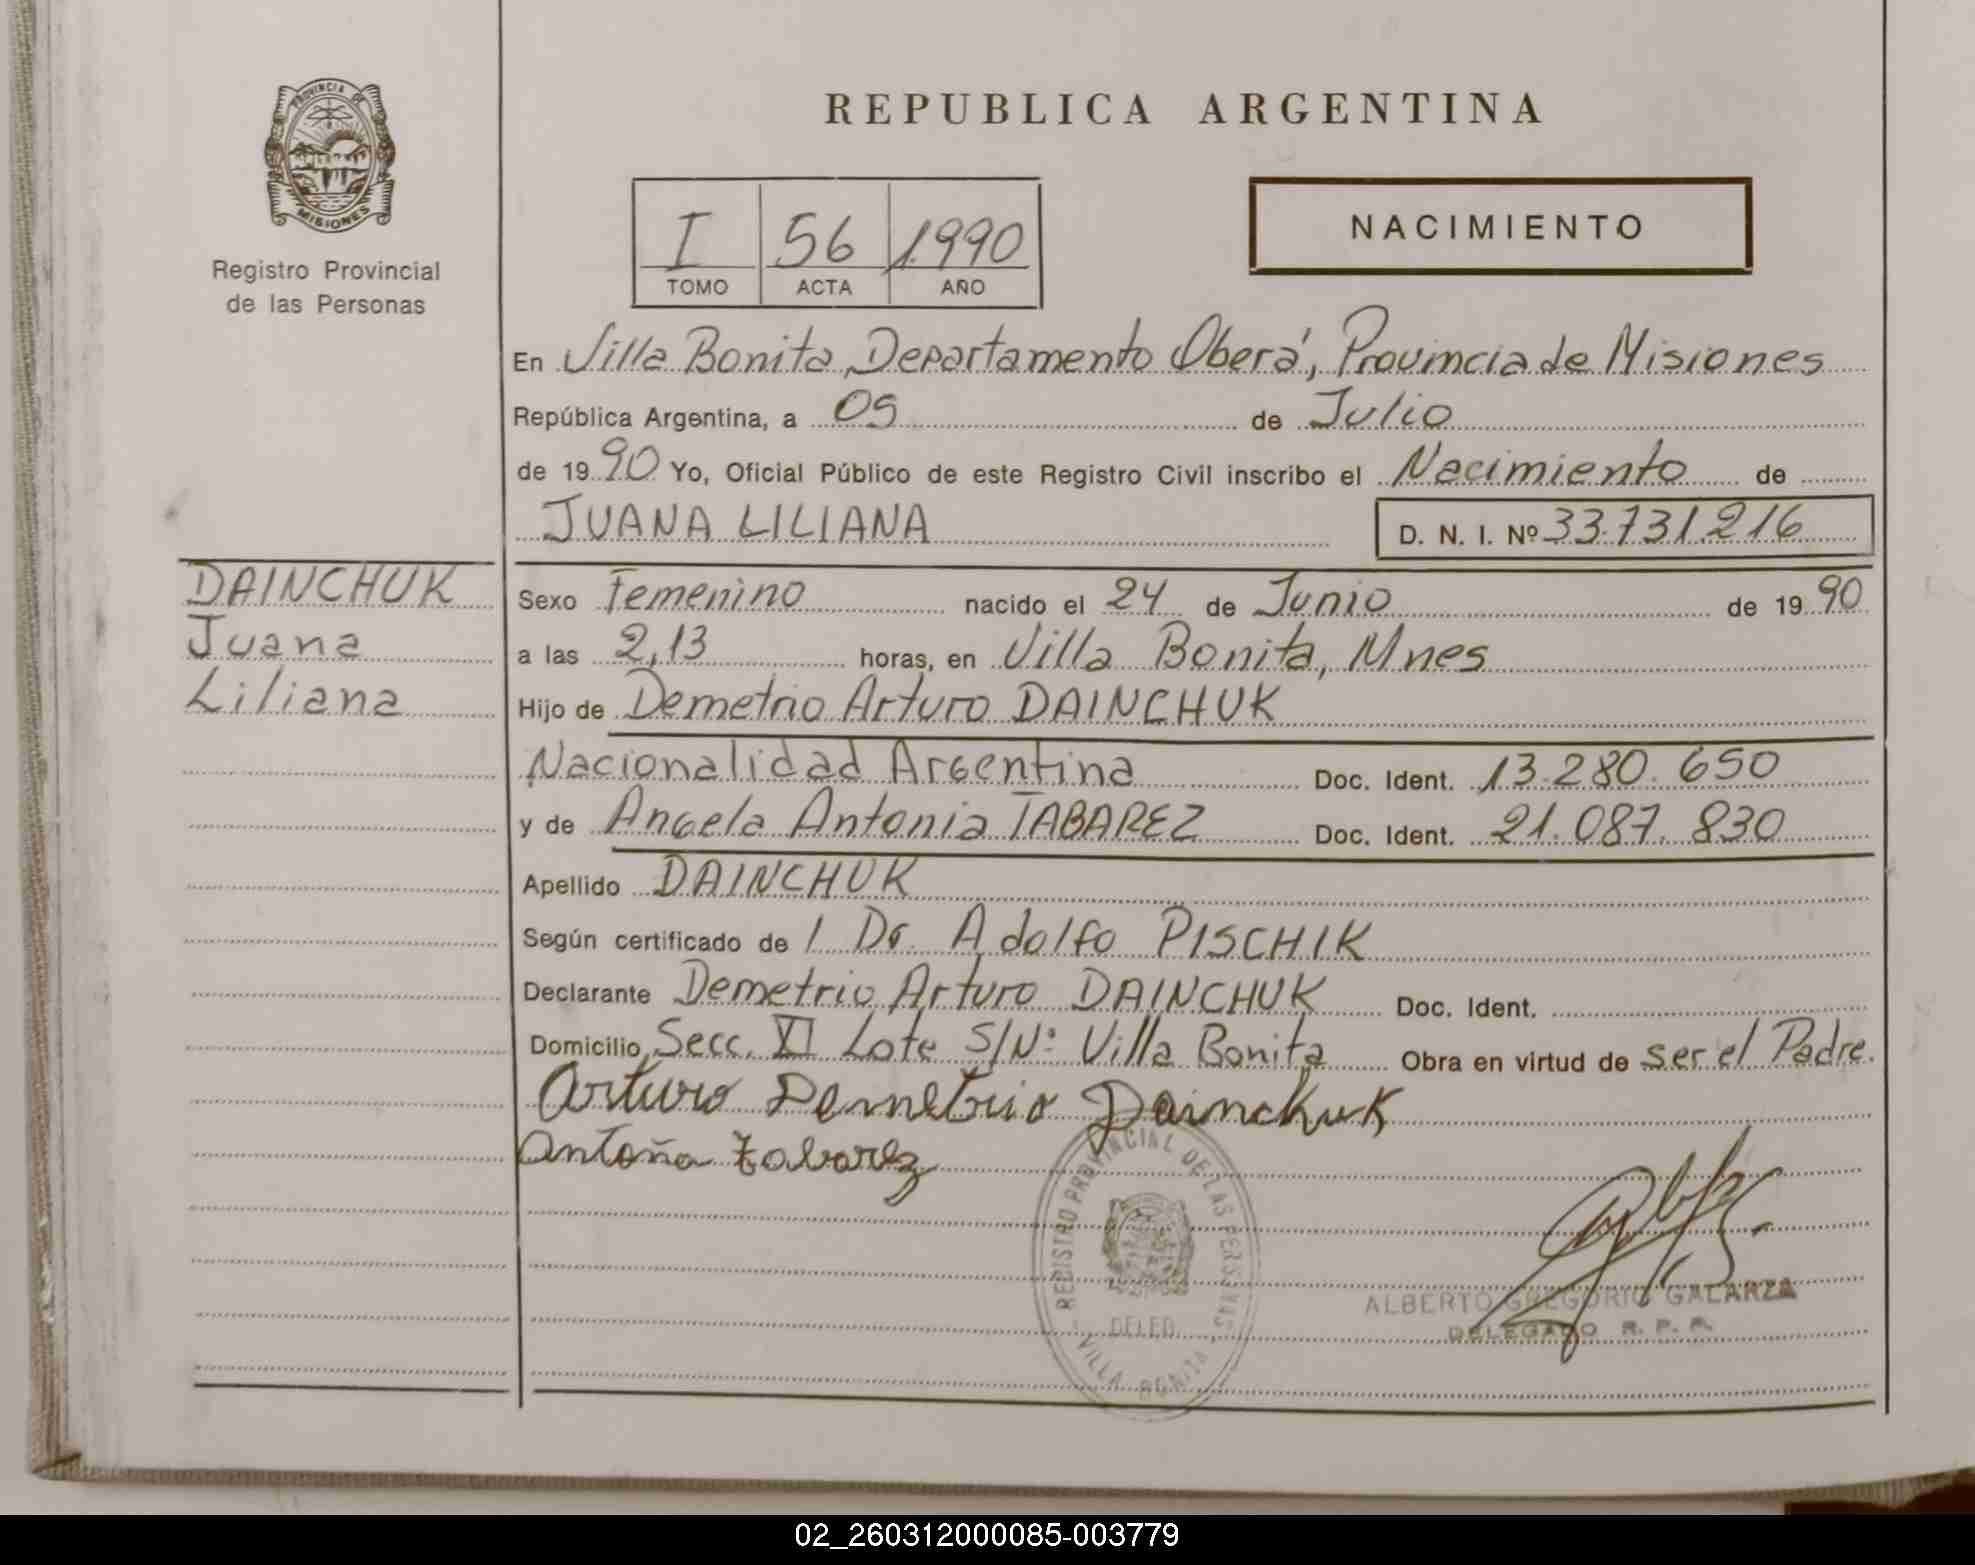 PROVINCIA DE
MISIONES
Registro Provincial
de las Personas
REPUBLICA ARGENTINA
I 56 1990
TOMO ACTA AÑO
NACIMIENTO
En Villa Bonita, Departamento Oberá, Provincia de Misiones
República Argentina, a 05 de Julio
de 1990 Yo, Oficial Público de este Registro Civil inscribo el Nacimiento de
JUANA LILIANA D. N. I. Nº 33.731.216
DAINCHUK
Juana
Liliana
Sexo Femenino nacido el 24 de Junio de 1990
a las 2,13 horas, en Villa Bonita, Mnes
Hijo de Demetrio Arturo DAINCHUK
Nacionalidad Argentina Doc. Ident. 13.280.650
y de Angela Antonia TABAREZ Doc. Ident. 21.087.830
Apellido DAINCHUK
Según certificado de / Dr. Adolfo PISCHIK
Declarante Demetrio Arturo DAINCHUK Doc. Ident.
Domicilio Secc. XI Lote S/Nº Villa Bonita Obra en virtud de ser el Padre.
Arturo Demetrio Dainchuk
Antoña Tabarez
REGISTRO PROVINCIAL DE LAS PERSONAS
DELEG.
VILLA BONITA
ALBERTO GREGORIO GALARZA
DELEGADO R. P. P.
02_260312000085-003779